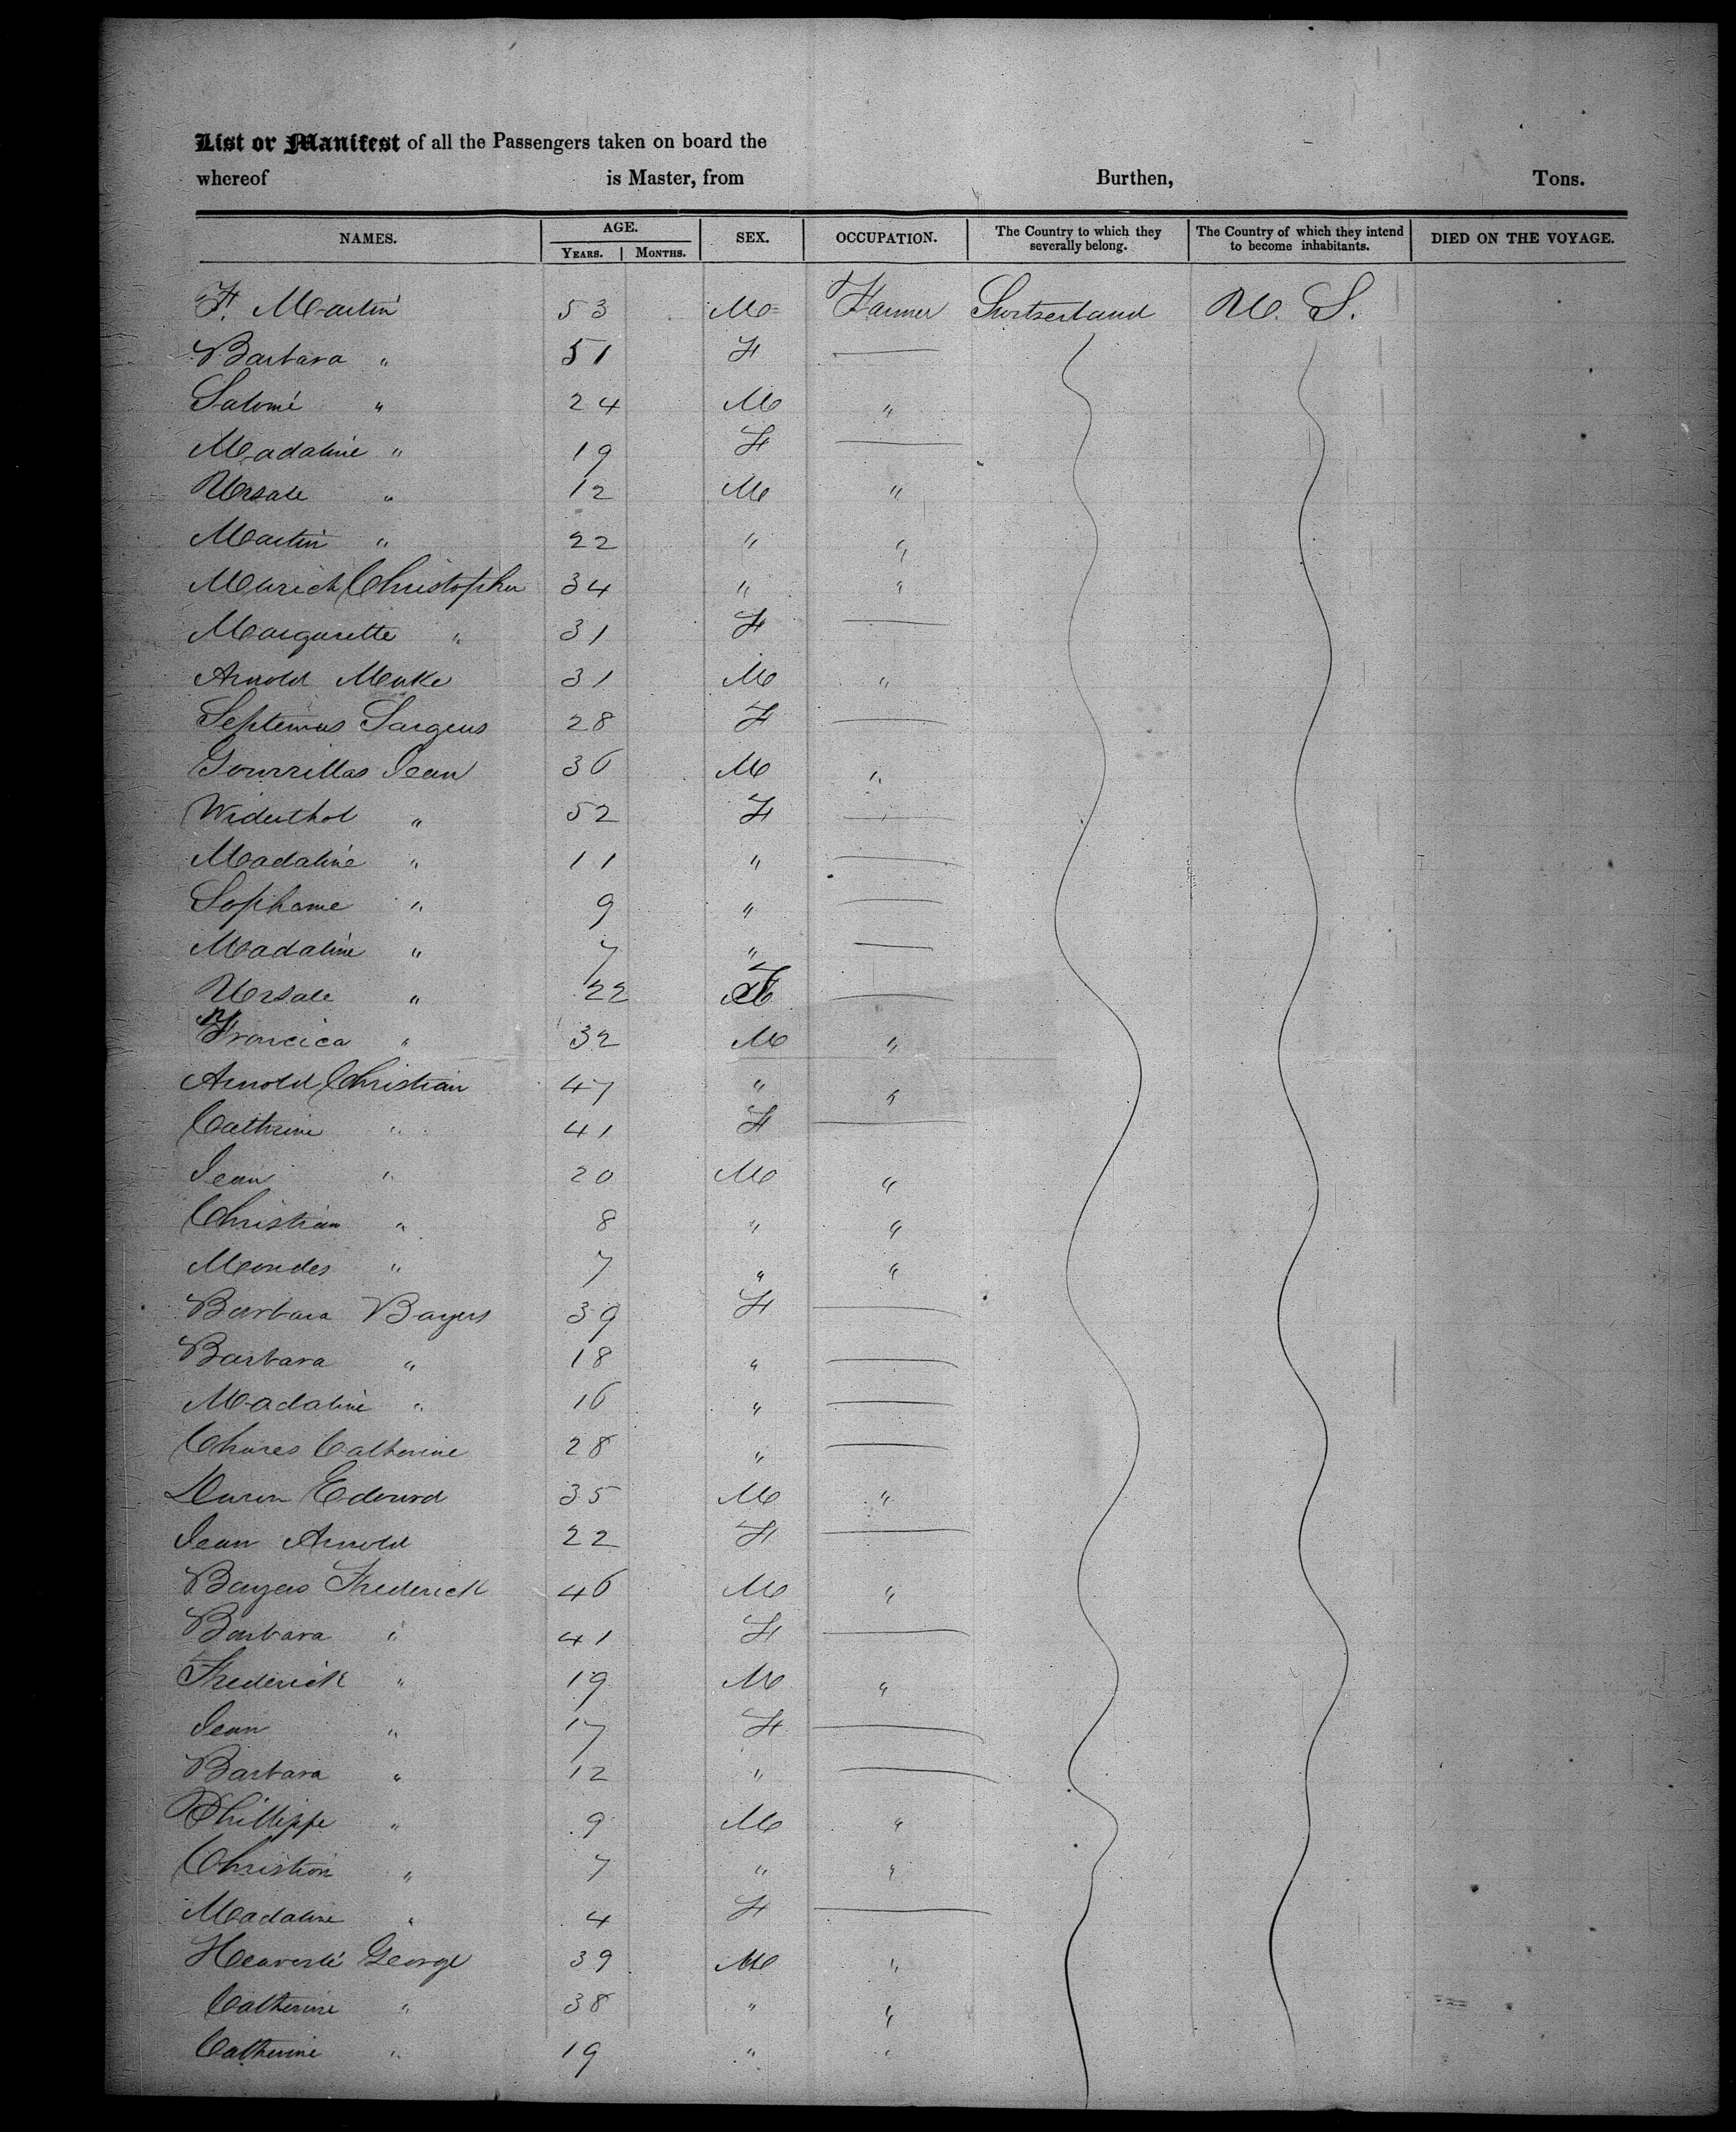 List or Manifest of all the Passengers taken on board the
whereof is Master, from Burthen, Tons.
NAMES. AGE. YEARS. MONTHS. SEX. OCCUPATION. The Country to which they severally belong. The Country of which they intend to become inhabitants. DIED ON THE VOYAGE.
F. Martin 53 M Farmer Switzerland U. S.
Barbara " 51 F —
Salomé " 24 M "
Madaline " 19 F —
Ursale " 12 M "
Martin " 22 " "
Christopher 34 " "
Margarette " 31 F —
Arnold 31 M "
Septemus 28 F —
Jean 36 M "
" 52 F —
Madaline " 11 " —
" 9 " —
Madaline " 7 " —
Ursale " 22 F —
Francica " 32 M "
Arnold Christian 47 " "
Cathrine " 41 F —
Jean " 20 M "
Christian " 8 " "
" 7 " "
Barbara Bayers 39 F —
Barbara " 18 " —
Madaline " 16 " —
Catherine 28 " —
Edourd 35 M "
Jean Arnold 22 F —
Bayers Frederick 46 M "
Barbara " 41 F —
Frederick " 19 M "
Jean " 17 F —
Barbara " 12 " —
Phillippe " 9 M "
Christion " 7 " "
Madaline " 4 F —
George 39 M "
Catherine " 38 " "
Catherine " 19 " "